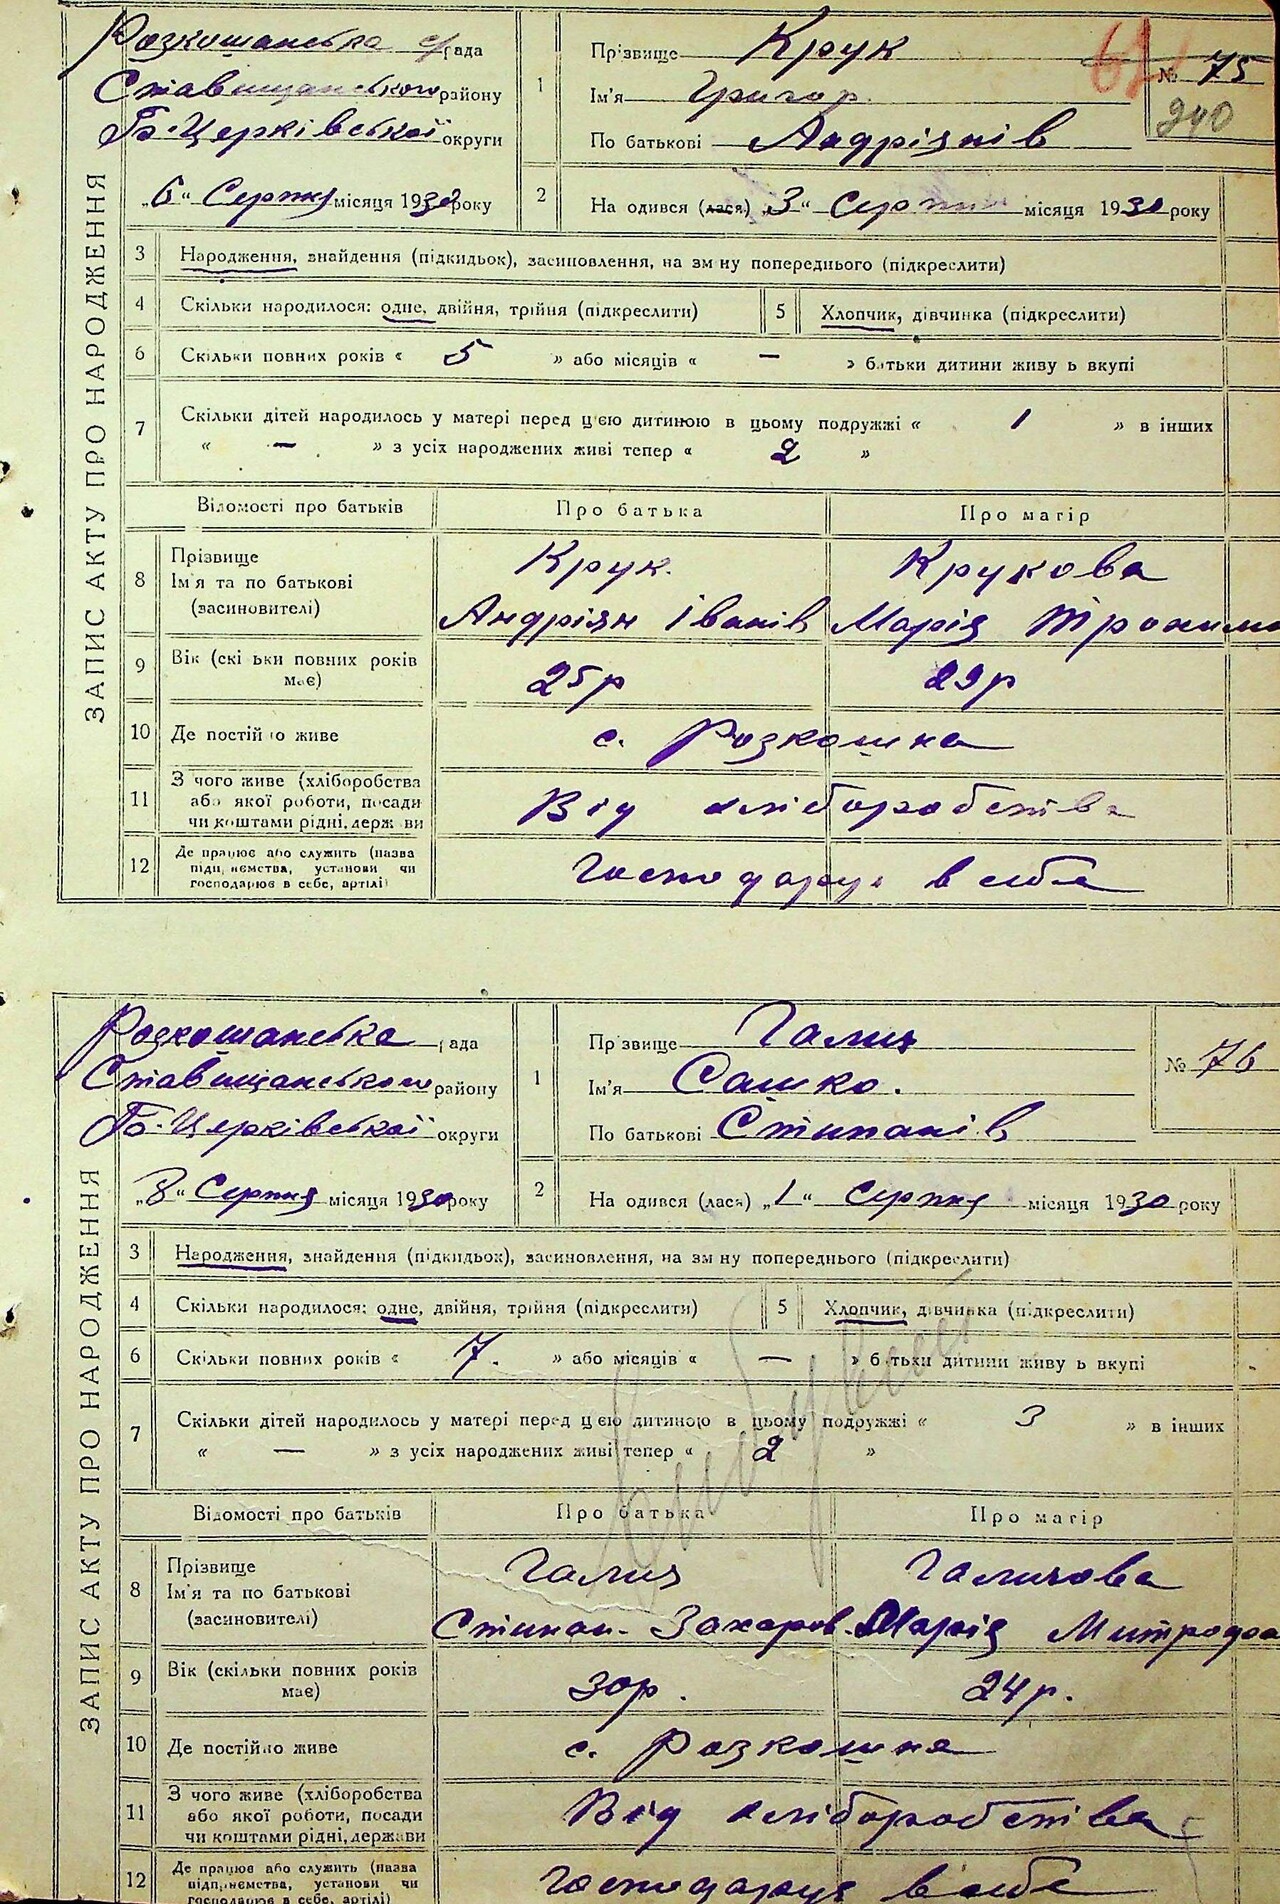 ЗАПИС АКТУ ПРО НАРОДЖЕННЯ
Розкошанська с/рада
Ставищанського району
Б-Церківської округи
„6“ Серпня місяця 1930 року
1
Прізвище Крук
Ім'я Григор.
По батькові Андріянів
№ 75
240
2
На одився (лася) „3“ Серпня місяця 1930 року
3 Народження, знайдення (підкидьок), засиновлення, на зм ну попереднього (підкреслити)
4 Скільки народилося: одне, двійня, трійня (підкреслити) 5 Хлопчик, дівчинка (підкреслити)
6 Скільки повних років « 5 » або місяців « — » батьки дитини живу ь вкупі
7 Скільки дітей народилось у матері перед цією дитиною в цьому подружжі « 1 » в інших
« — » з усіх народжених живі тепер « 2 »
Відомості про батьків Про батька Про матір
8 Прізвище
Ім'я та по батькові
(засиновителі)
Крук. Крукова
Андріян Іванів Марія
9 Вік (скі ьки повних років
має)
25р 29р
10 Де постій о живе с. Розкошна
11 З чого живе (хліборобства
або якої роботи, посади
чи коштами рідні, держ ви
Від хліборобства
12 Де працює або служить (назва
підп, иємства, установи чи
господарює в себе, артілі)
Господарює в себе
ЗАПИС АКТУ ПРО НАРОДЖЕННЯ
Розкошанська рада
Ставищанського району
Б-Церківської округи
„8“ Серпня місяця 1930 року
1
Пр звище Галич
Ім'я Сашко.
По батькові Стипанів
№ 76
2
На одився (лася) „1“ серпня місяця 1930 року
3 Народження, знайдення (підкидьок), засиновлення, на зм ну попереднього (підкреслити)
4 Скільки народилося: одне, двійня, трійня (підкреслити) 5 Хлопчик, дівчинка (підкреслити)
6 Скільки повних років « 7. » або місяців « — » батьки дитини живу ь вкупі
7 Скільки дітей народилось у матері перед цією дитиною в цьому подружжі « 3 » в інших
« — » з усіх народжених живі тепер « 2 »
Відомості про батьків Про батька Про матір
8 Прізвище
Ім'я та по батькові
(засиновителі)
Галич Галичова
Стипан Захаров Марія
9 Вік (скільки повних років
має)
30р. 24р.
10 Де постійно живе с. Розкошна
11 З чого живе (хліборобства
або якої роботи, посади
чи коштами рідні, держави
Від хліборобства
12 Де працює або служить (назва
підприємства, установи чи
господарює в себе, артілі)
Господарює в себе